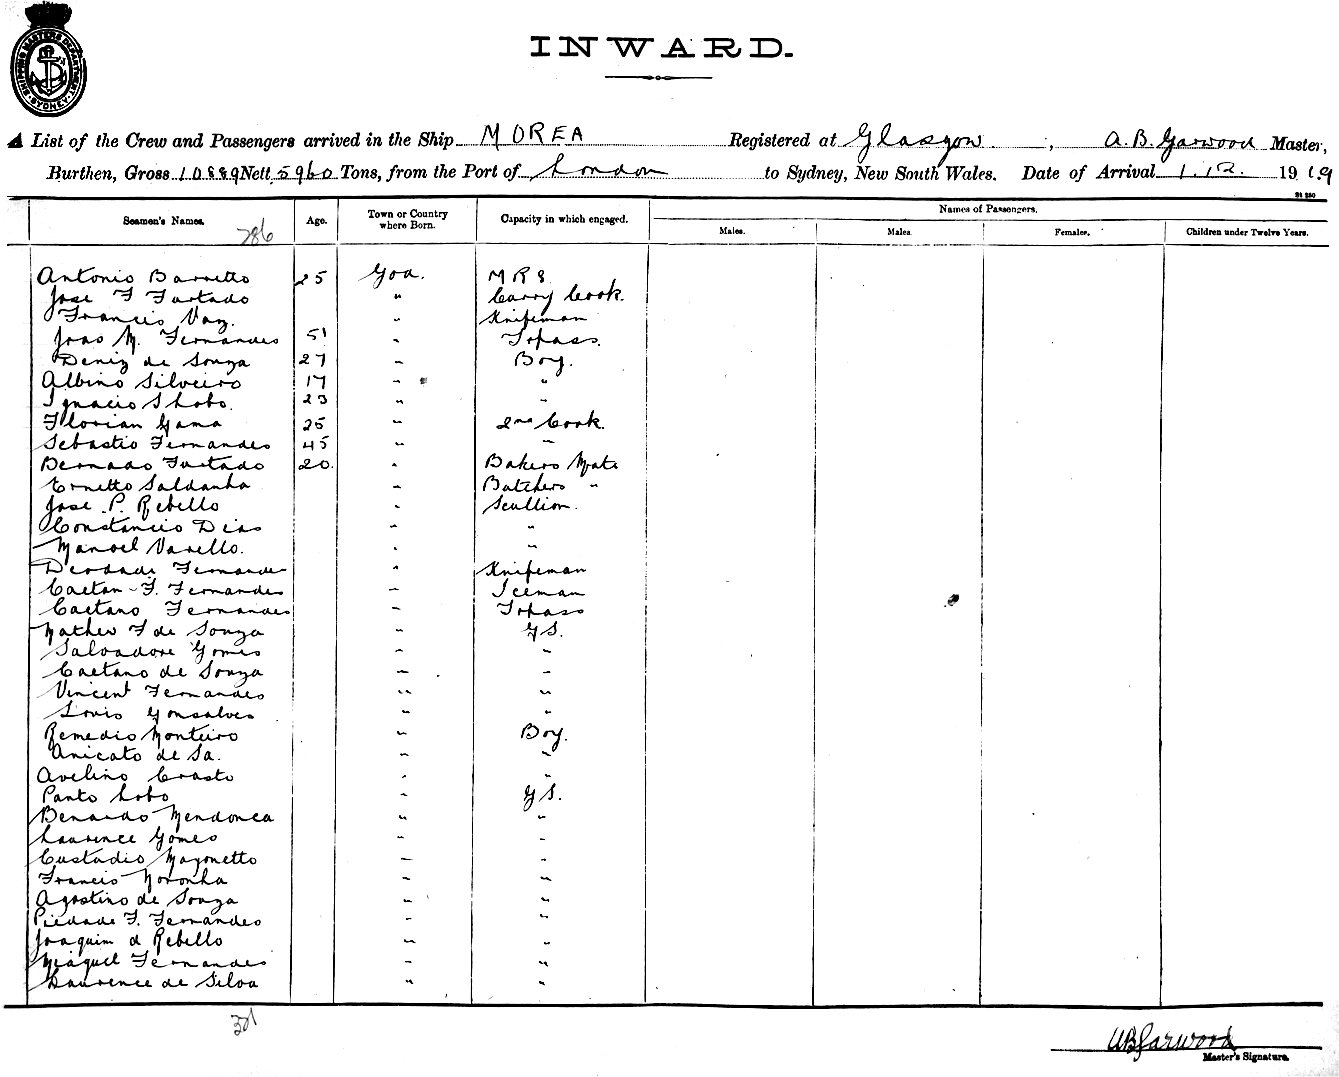 SHIPPING MASTERS DEPARTMENT SYDNEY
INWARD.
A List of the Crew and Passengers arrived in the Ship MOREA Registered at Glasgow, A.B. Garwood Master,
Burthen, Gross 10889 Nett 5960 Tons, from the Port of London to Sydney, New South Wales. Date of Arrival 1.12. 1919
Seamen's Names. Age. Town or Country where Born. Capacity in which engaged. Names of Passengers.
Males. Males. Females. Children under Twelve Years.
286
Antonio Barretto 25 Goa. M R S.
Jose F Furtado " Carry Cook.
Francis Vaz. " Knifeman
Joao M. Fernandes 51 " Topass.
Deniz de Souza 27 " Boy.
Albino Silveiro 17 " "
Ignacio S Lobo. 23 " "
Florian Gama 25 " 2nd Cook.
Sebastio Fernandes 45 " "
Bernado Furtado 20. " Bakers Mate
Ernetto Saldanha " Butchers "
Jose P. Rebello " Scullion.
Constancio Dias " "
Manoel Varello. " "
Deodade Fernandes " Knifeman
Caetan F. Fernandes " Iceman
Caetano Fernandes " Topass
Mathew F de Souza " G S.
Salvadore Gomes " "
Caetano de Souza " "
Vincent Fernandes " "
Louis Gonsalves " "
Remedio Monteiro " Boy.
Anicato de Sa. " "
Avelino Crasto " "
Panto Lobo " G S.
Benardo Mendonca " "
Laurence Gomes " "
Custadio Mazonetto " "
Francis Noronha " "
Agostino de Souza " "
Piedade F. Fernandes " "
Joaquim d Rebello " "
Miaquel Fernandes " "
Laurence de Silva " "
A B Garwood
Master's Signature.